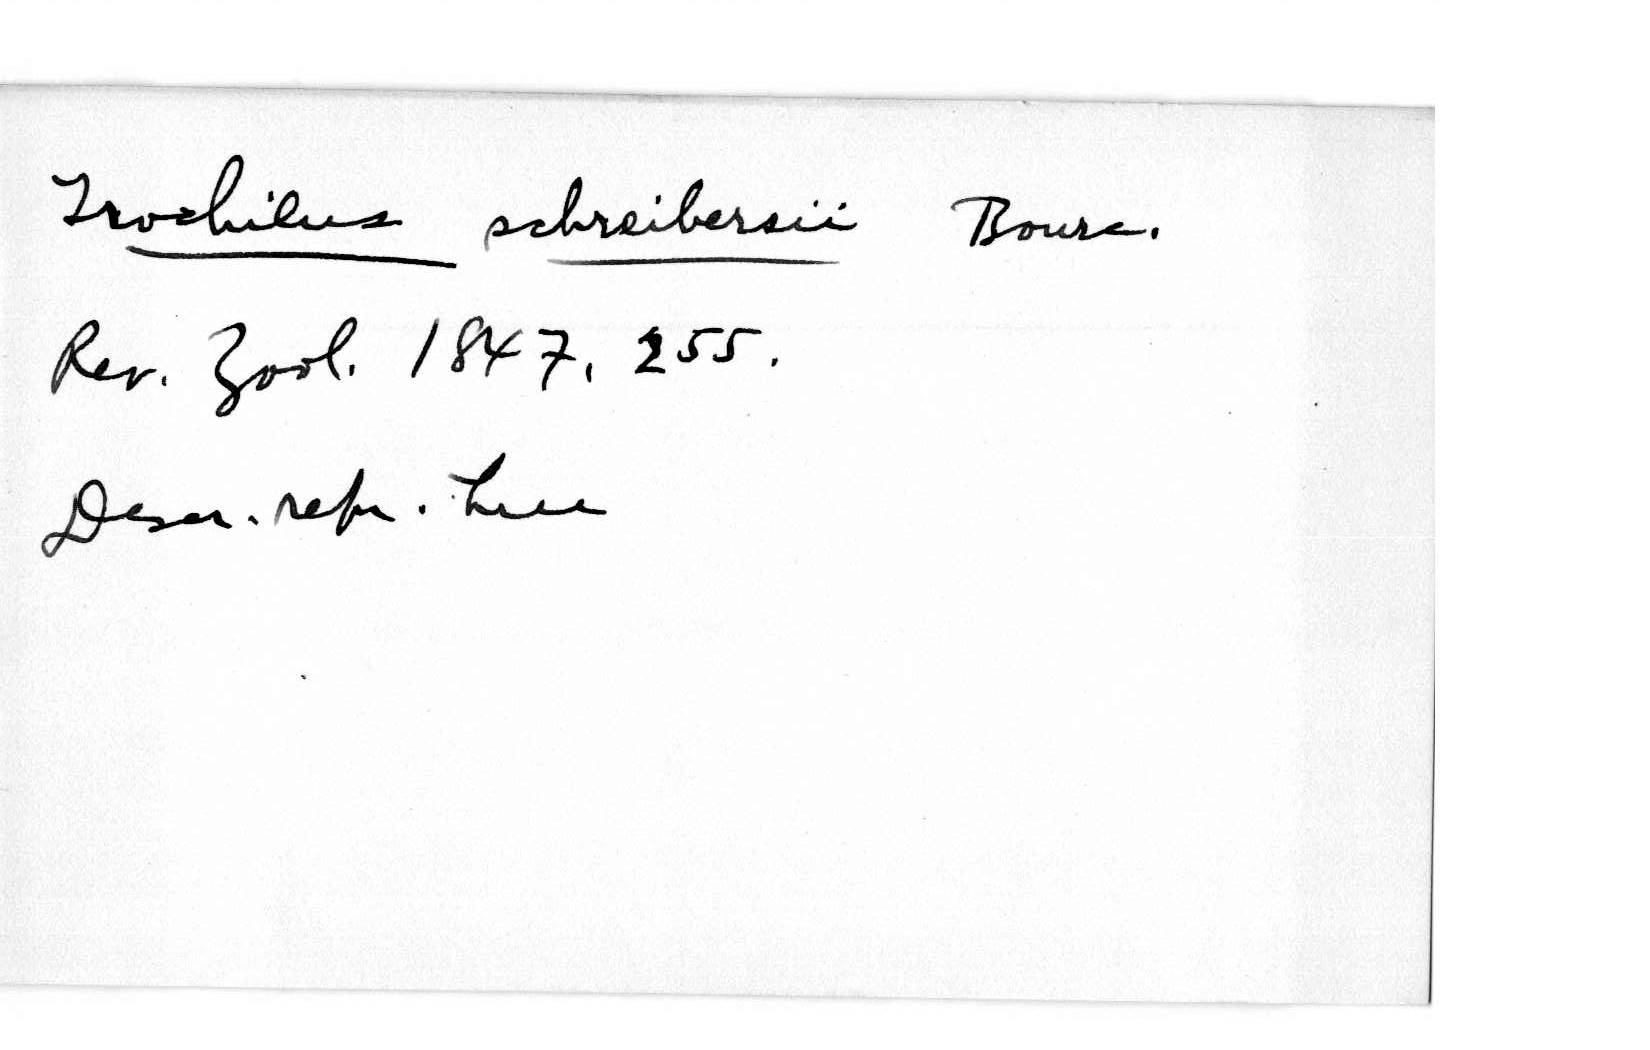 Trochilus schreibersii Bourc.
Rev. Zool. 1847, 255.
Descr. repr. here